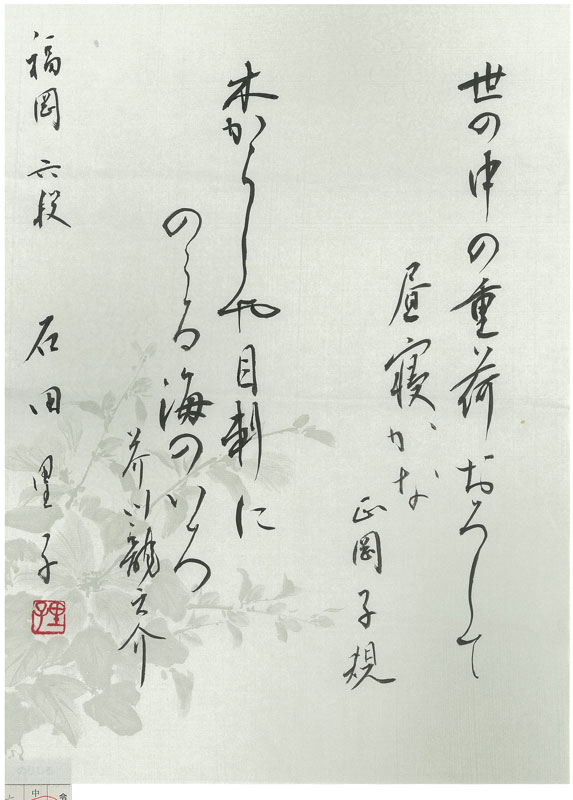 世の中の重荷おろして
昼寝かな
正岡子規
木からしや目刺に
のこる海のいろ
芥川龍之介
福岡 六段 石田里子
里子
のりしろ
中
令